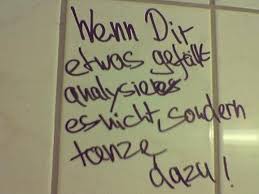 Wenn Dir
etwas gefällt
analysiere
es nicht, sondern
tanze
dazu!